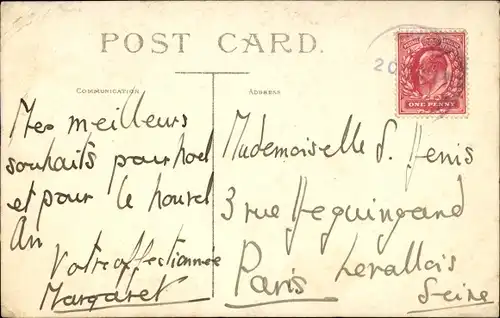 POST CARD.
COMMUNICATION
ADDRESS
20
ONE PENNY
Mes meilleurs
souhaits pour noel
et pour le nouvel
An
Votre affectionnée
Margaret
Mademoiselle S. Henis
3 rue Heguingand
Paris Levallois
Seine